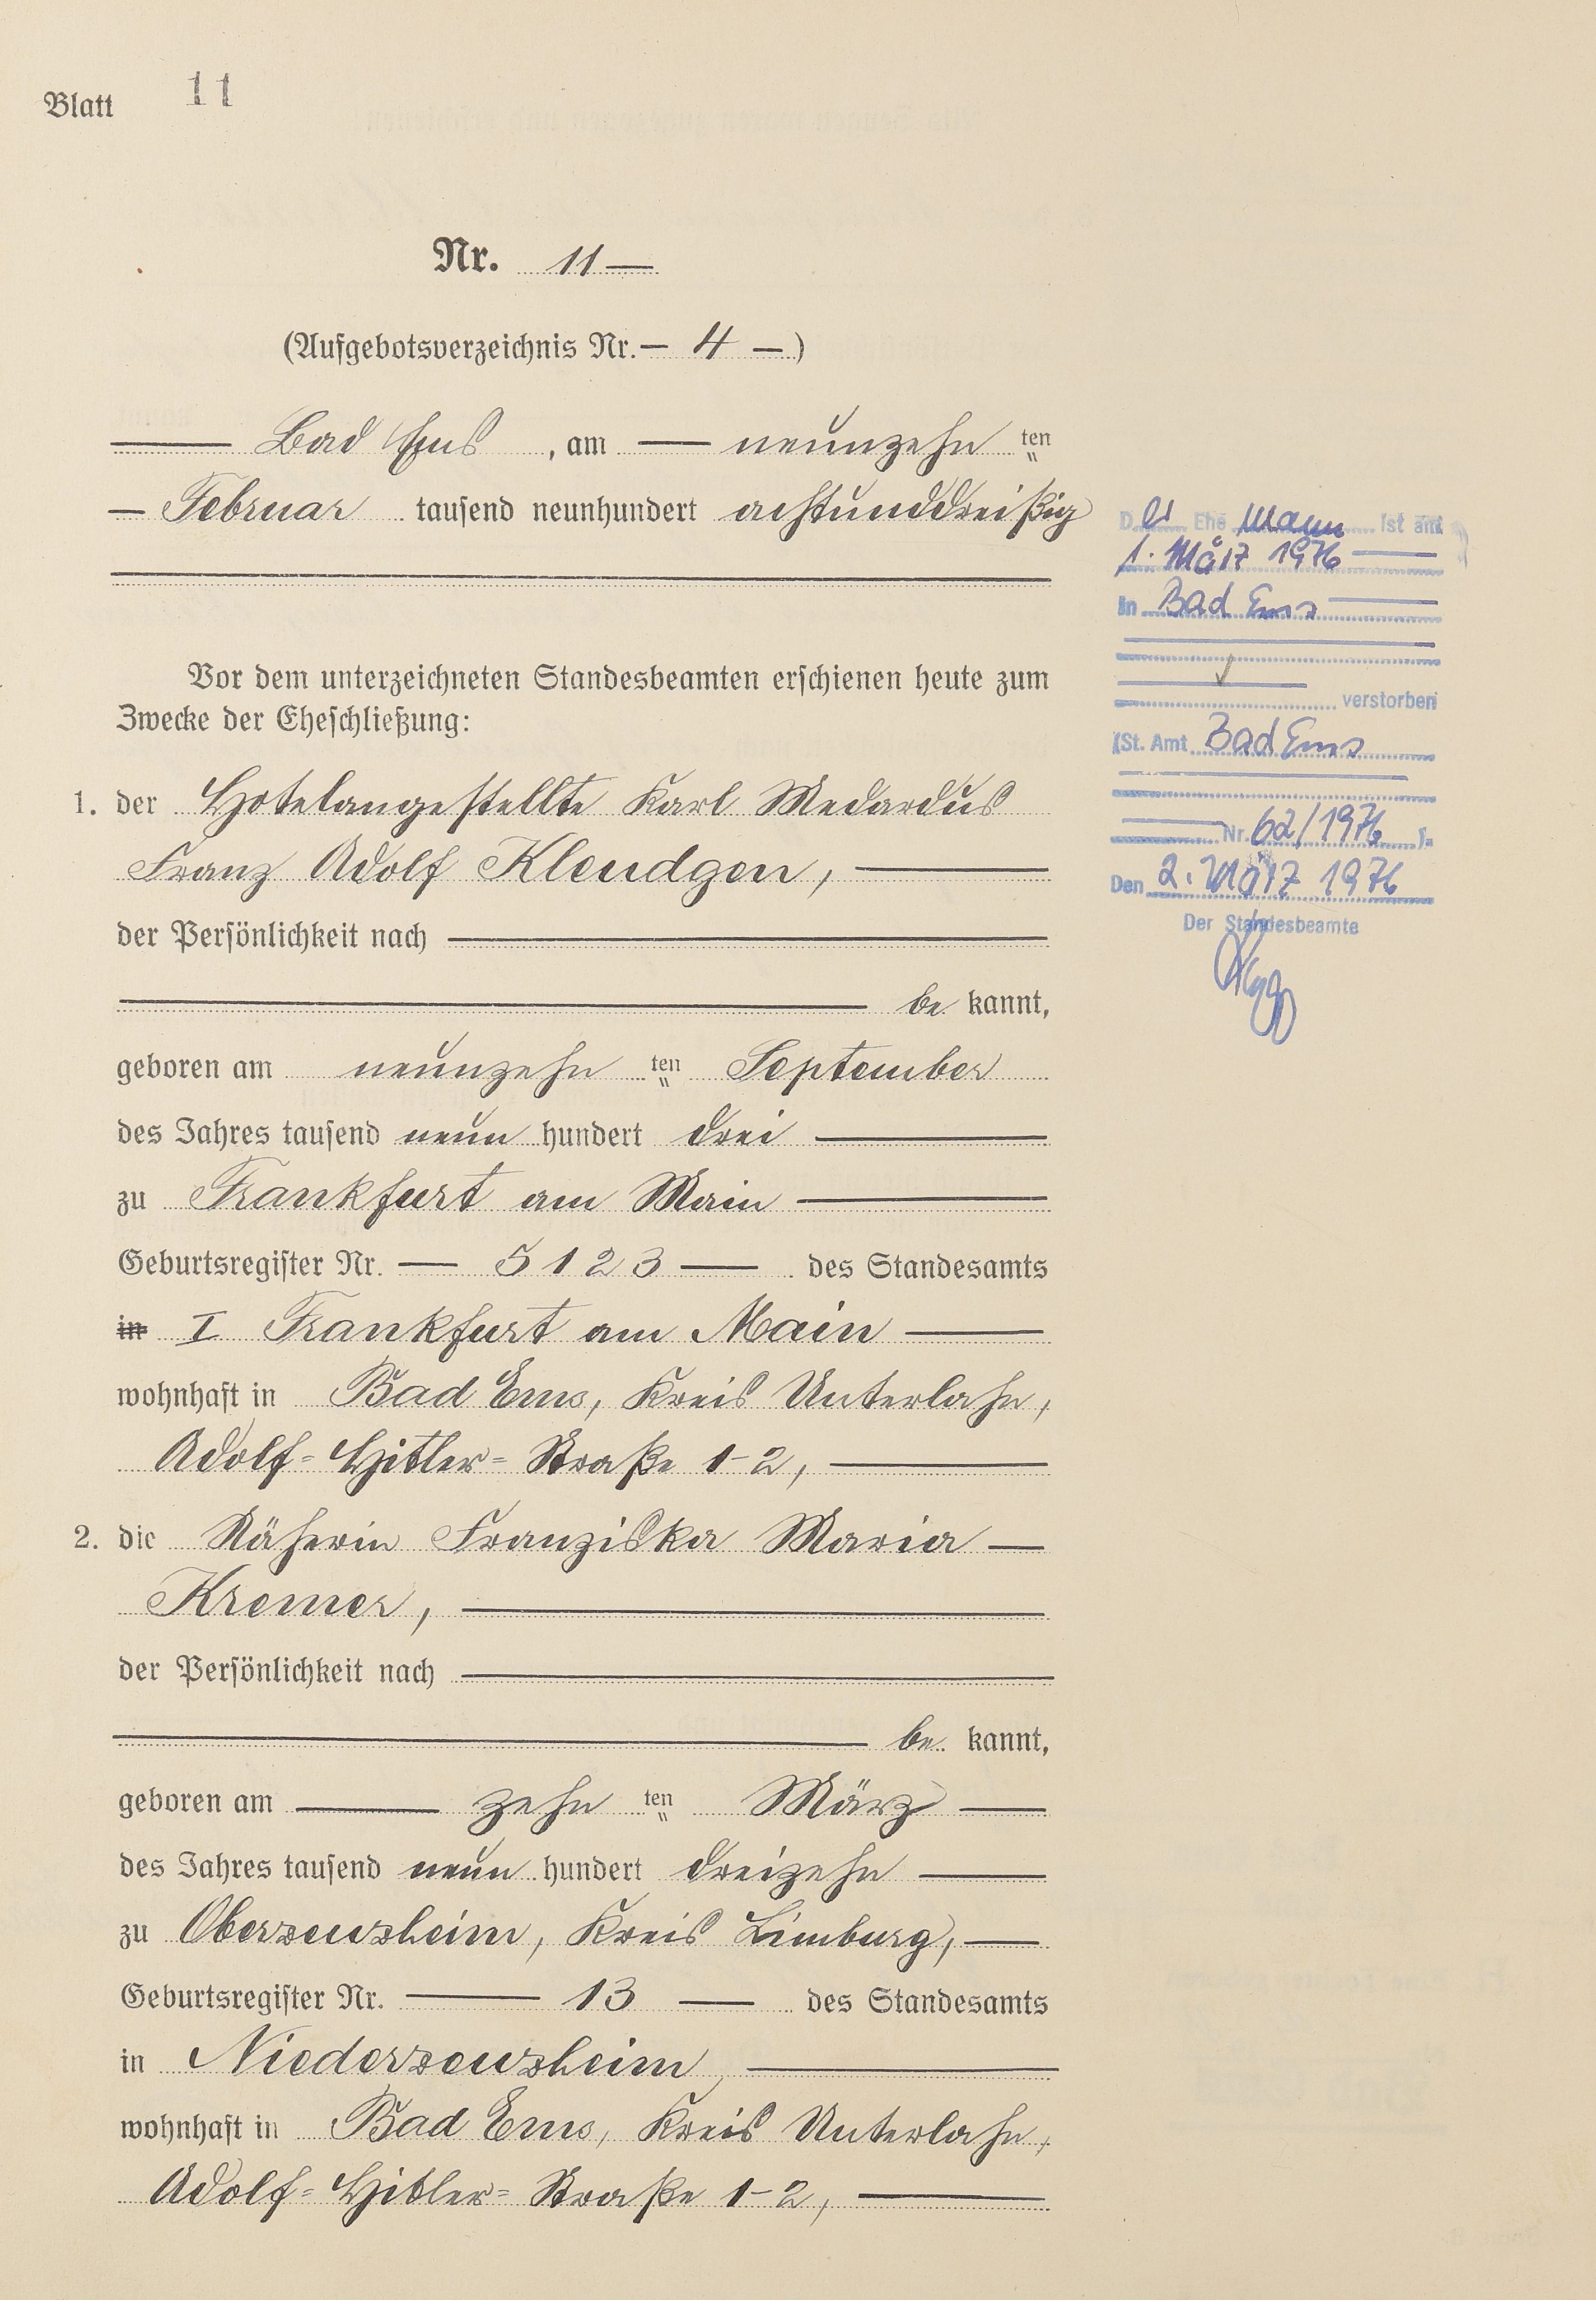 Blatt 11
Nr. 11 —
(Aufgebotsverzeichnis Nr. — 4 —)
— Bad Ems, am — neunzehn ten
— Februar tausend neunhundert achtunddreißig
Vor dem unterzeichneten Standesbeamten erschienen heute zum
Zwecke der Eheschließung:
1. der Hotelangestellte Karl Medardus
Franz Adolf Klendgen, —
der Persönlichkeit nach —
— be kannt,
geboren am neunzehn ten September
des Jahres tausend neun hundert drei —
zu Frankfurt am Main —
Geburtsregister Nr. — 5123 — des Standesamts
in I Frankfurt am Main —
wohnhaft in Bad Ems, Kreis Unterlahn,
Adolf-Hitler-Straße 1-2, —
2. die Näherin Franziska Maria —
Kremer, —
der Persönlichkeit nach —
— be kannt,
geboren am — zehn ten März —
des Jahres tausend neun hundert dreizehn —
zu Oberzeuzheim, Kreis Limburg, —
Geburtsregister Nr. — 13 — des Standesamts
in Niederzeuzheim, —
wohnhaft in Bad Ems, Kreis Unterlahn,
Adolf-Hitler-Straße 1-2, —
Der Ehe Mann ist am
1. März 1976 —
in Bad Ems —
verstorben
(St. Amt Bad Ems
Nr. 62/1976).
Den 2. März 1976
Der Standesbeamte